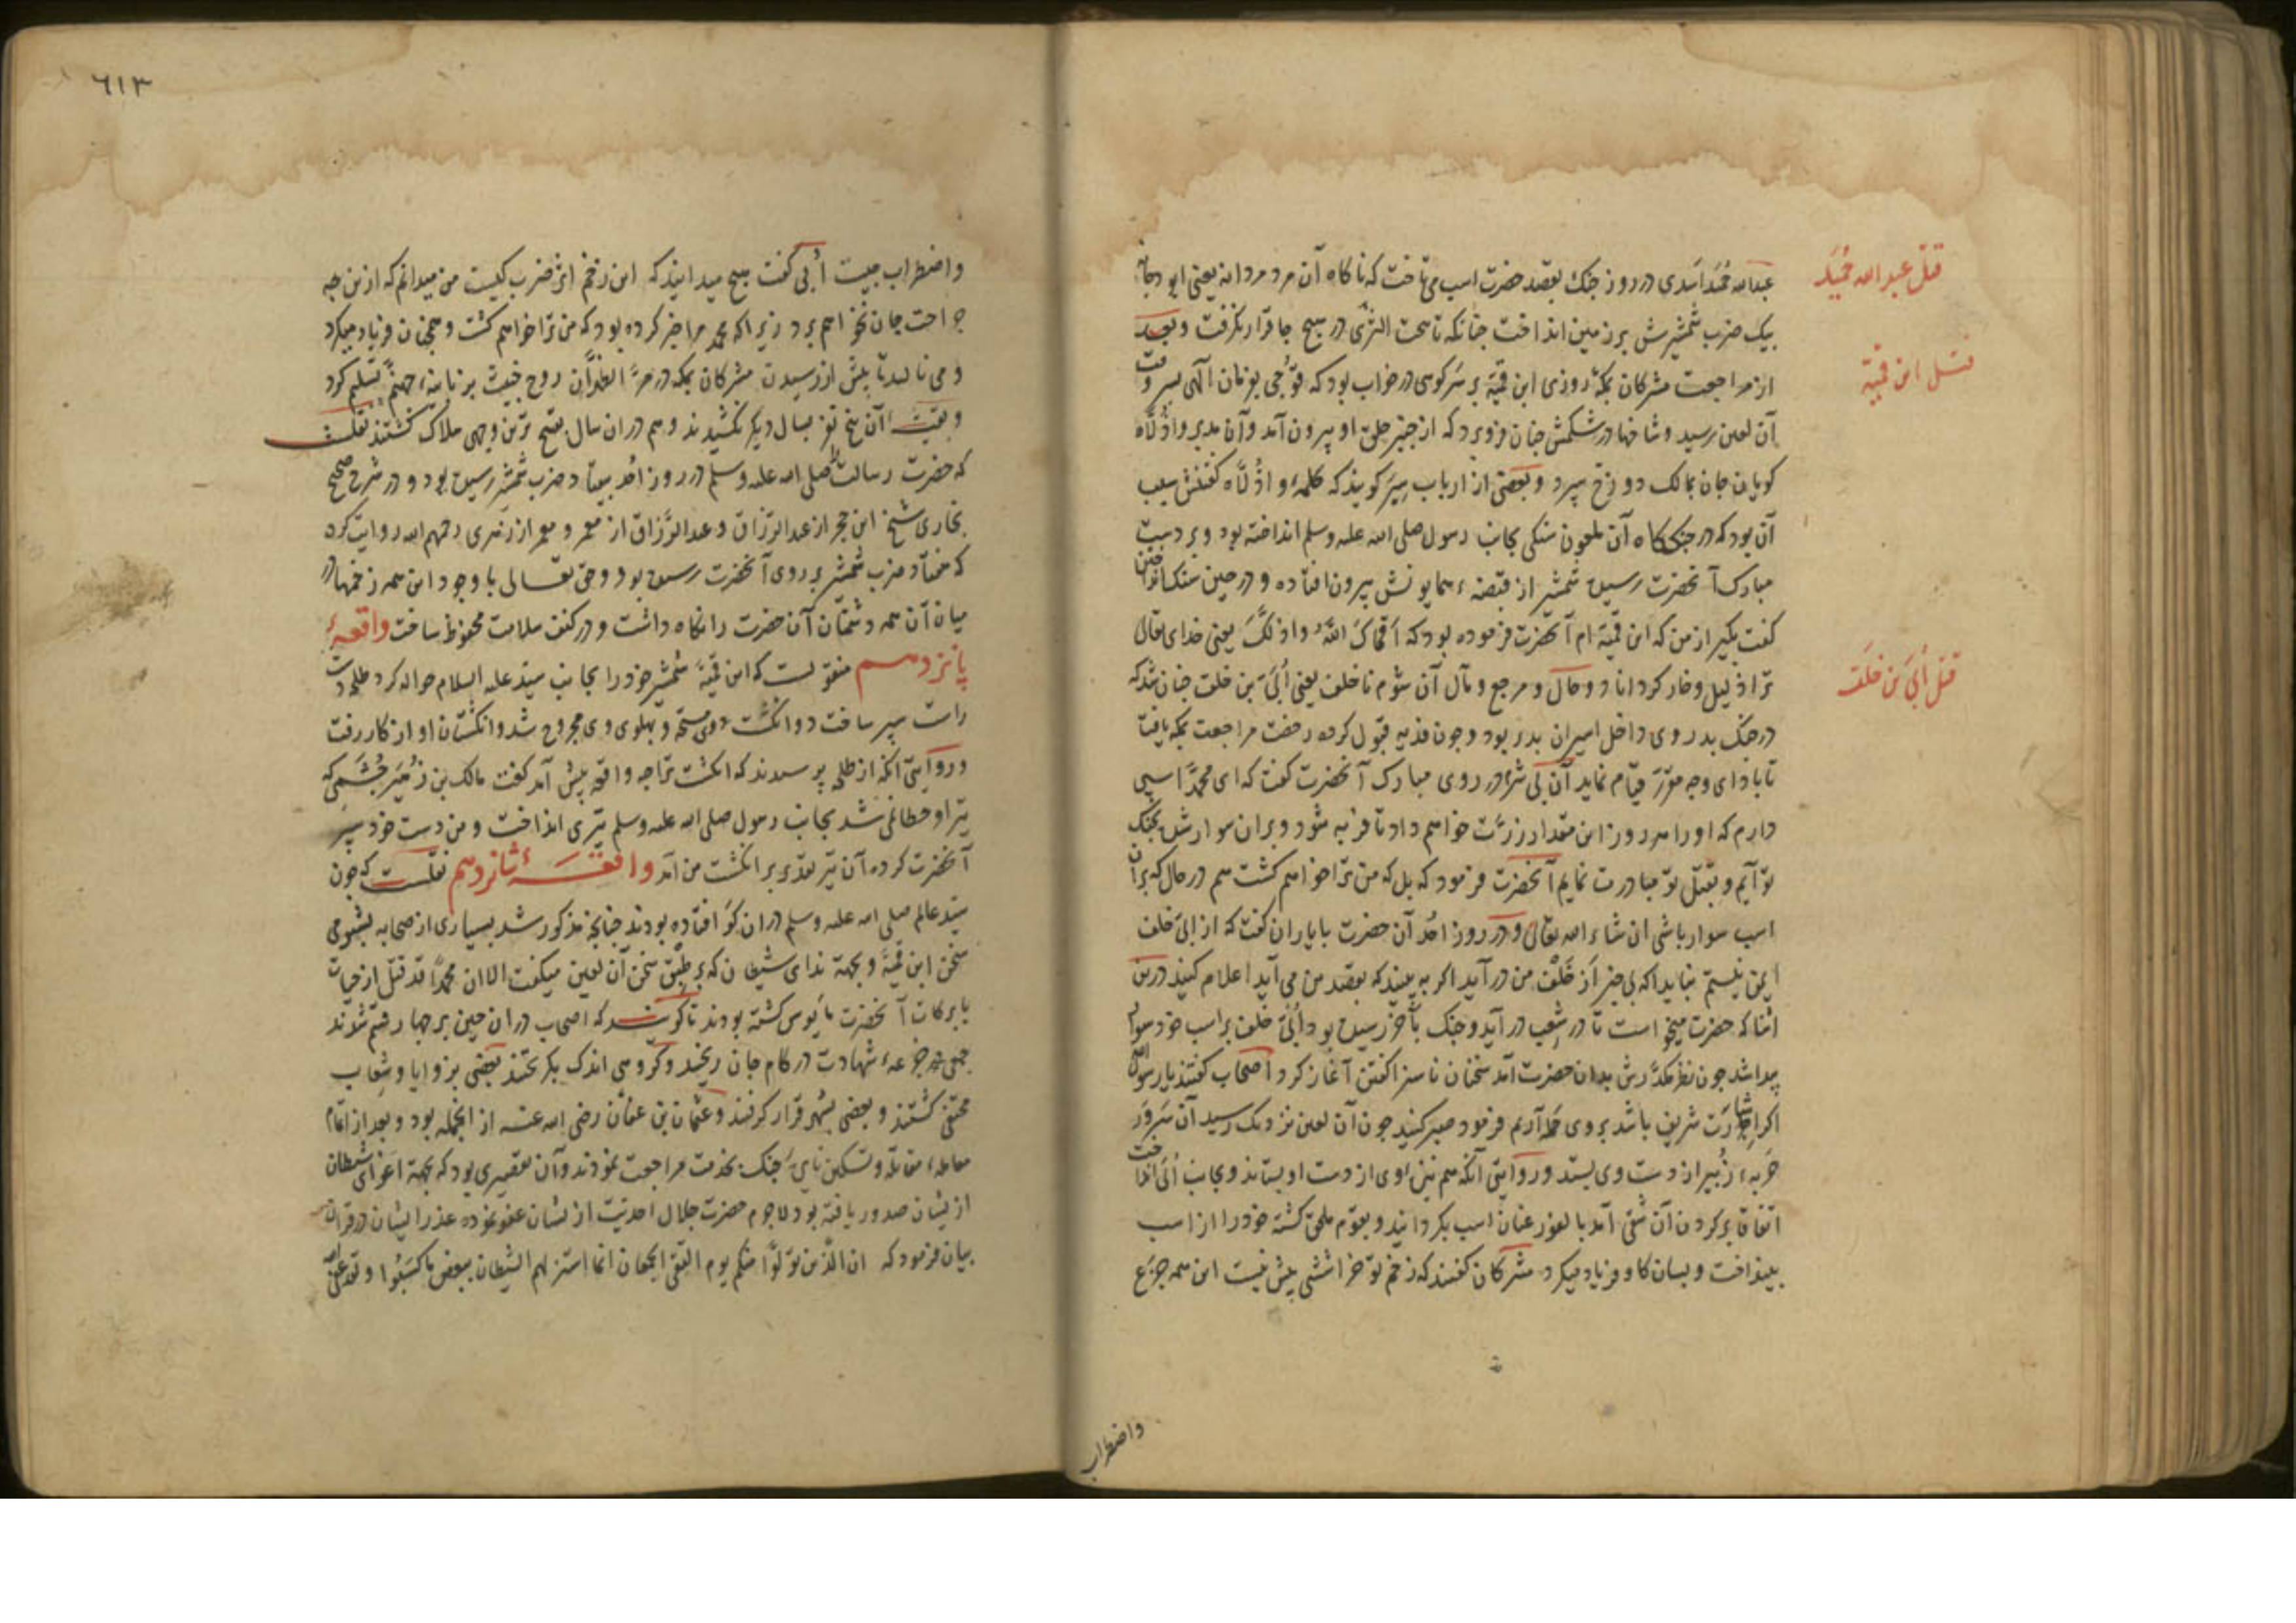 قتل عبد الله حمید
عبدالله حمید اسدی در روز جنک بقصد حضرت اسب می تاخت که ناکاه آن مرد مردانه یعنی ابو دجانه
بیک ضرب شمشیرش بر زمین انداخت جنانکه تا تحت الثری در هیچ جا قرار نکرفت و بعد
قتل ابن قمیة
از مراجعت مشرکان بمکه روزی ابن قمیة بر سر کوهی در خواب بود که قوجی بفرمان الهی بسر وقت
آن لعین رسید و شاخها در شکمش جنان فرو برد که از جنبر حلق او بیرون آمد و آن مدبر واذلاه
کویان جان بمالک دوزخ سپرد و بعضی از ارباب سیر کویند که کلمهٔ واذلاه کفتنش سبب
آن بود که در جنک کاه آن ملعون سنکی بجانب رسول صلی الله علیه وسلم انداخته بود و بر دست
مبارک آنحضرت رسیده شمشیر از قبضهٔ همایونش بیرون افتاده و در حین سنک انداختن
کفت بکیر از من که ابن قمیة ام آنحضرت فرموده بود که اقماک الله واذلک یعنی خدای تعالی
قتل ابی بن خلف
ترا ذلیل و خار کرداناد و حال و مرجع و مآل آن شوم ناخلف یعنی ابی بن خلف جنان شد که
در جنک بدر وی داخل اسیران بدر بود و جون فدیه قبول کرده رخصت مراجعت بمکه یافت
تا بادای وجه مقرر قیام نماید آن بی شرم در روی مبارک آنحضرت کفت که ای محمد اسبی
دارم که او را هر روز این مقدار ذرت خواهم داد تا فربه شود و بران سوار شده بجنک
تو آیم و بقتل تو مبادرت نمایم آنحضرت فرمود که بل که من ترا خواهم کشت هم در حال که بران
اسب سوار باشی ان شاء الله تعالی و در روز احد آن حضرت بایاران کفت که از ابی خلف
ایمن نیستم نباید که بی خبر از خلف من در آید اکر به بینید که بقصد من می آید اعلام کنید درین
اثنا که حضرت میخواست تا در شعب در آید و جنک بآخر رسیده بود ابی خلف بر اسب خود سوار
پیدا شد جون نظر مکدرش بدان حضرت آمد سخنان ناسزا کفتن آغاز کرد اصحاب کفتند یا رسول الله
اکر اجازت شریف باشد بروی حمله آریم فرمود صبر کنید جون آن لعین نزدیک رسید آن سرور
حربهٔ زبیر از دست وی بستد و روایتی آنکه هم نیزه اوی از دست او بستاند و بجانب ابی انداخت
اتفاقا بر کردن آن شقی آمد بالفور عنان اسب بکردانید و بقوم ملحق کشته خود را از اسب
بینداخت و بسان کاو فریاد میکرد مشرکان کفتند که زخم تو خراشی بیش نیست این همه جزع
واضطراب
٦١٣
واضطراب جیست ابی کفت هیچ میدانید که این زخم اثر ضرب کیست من میدانم که ازین جه
جراحت جان نخواهم برد زیرا که محمد مرا خبر کرده بود که من ترا خواهم کشت و همجنان فریاد میکرد
و می نالید تا پیش از رسیدن مشرکان بمکه در مر الظهران روح خبیث بزبانیهٔ جهنم تسلیم کرد
و بقیت آن پنج نفر بسال دیکر نکشیدند و هم دران سال بقبح ترین وجهی هلاک کشتند نقلست
که حضرت رسالت صلی الله علیه وسلم در روز احد هفتاد ضرب شمشیر رسیده بود و در شرح صحیح
بخاری شیخ ابن حجر از عبد الرزاق و عبد الرزاق از معمر و معمر از زهری رحمهم الله روایت کرده
که هفتاد ضرب شمشیر بر روی آنحضرت رسیده بود و حق تعالی با وجود این همه زخمها در
میان آن همه دشمنان آن حضرت را نکاه داشت و در کنف سلامت محفوظ ساخت واقعهٔ
پانزدهم منقولست که ابن قمیة شمشیر خود را بجانب سید علیه السلام حواله کرد طلحه دست
راست سپر ساخت دو انکشت و پهلوی وی مجروح شد و انکشتان او از کار رفت
و روایتی آنکه از طلحه پرسیدند که انکشت ترا جه واقعه پیش آمد کفت مالک بن زهیر جشمی که
تیر او خطا نمی شد بجانب رسول صلی الله علیه وسلم تیری انداخت و من دست خود سپر
آنحضرت کرده آن تیر بر انکشت من آمد واقعهٔ شانزدهم نقلست که جون
سید عالم صلی الله علیه وسلم دران کو افتاده بودند جنانجه مذکور شد بسیاری از صحابه بشومی
سخن ابن قمیة و بجهة ندای شیطان که بر طبق سخن آن لعین میکفت الا ان محمدا قد قتل از حیات
بابرکات آنحضرت مایوس کشته بودند تا کویند که اصحاب دران حین بر جهار قسم شدند
جمعی جرعهٔ شهادت در کام جان ریختند و کروهی اندک بکریختند بعضی بزوایا و شعاب
مختفی کشتند و بعضی بشهر قرار کرفتند و عثمان بن عفان رضی الله عنه از آنجمله بود و بعد از اتمام
معاملهٔ مقاتله و تسکین نایرهٔ جنک بخدمت مراجعت نمودند و آن تقصیری بود که بجهة اغوای شیطان
ازیشان صدور یافته بود لاجرم حضرت جلال احدیت ازیشان عفو نموده عذر ایشان در قرآن
بیان فرمود که ان الذین تولوا منکم یوم التقی الجمعان انما استزلهم الشیطان ببعض ما کسبوا ولقد عفی الله